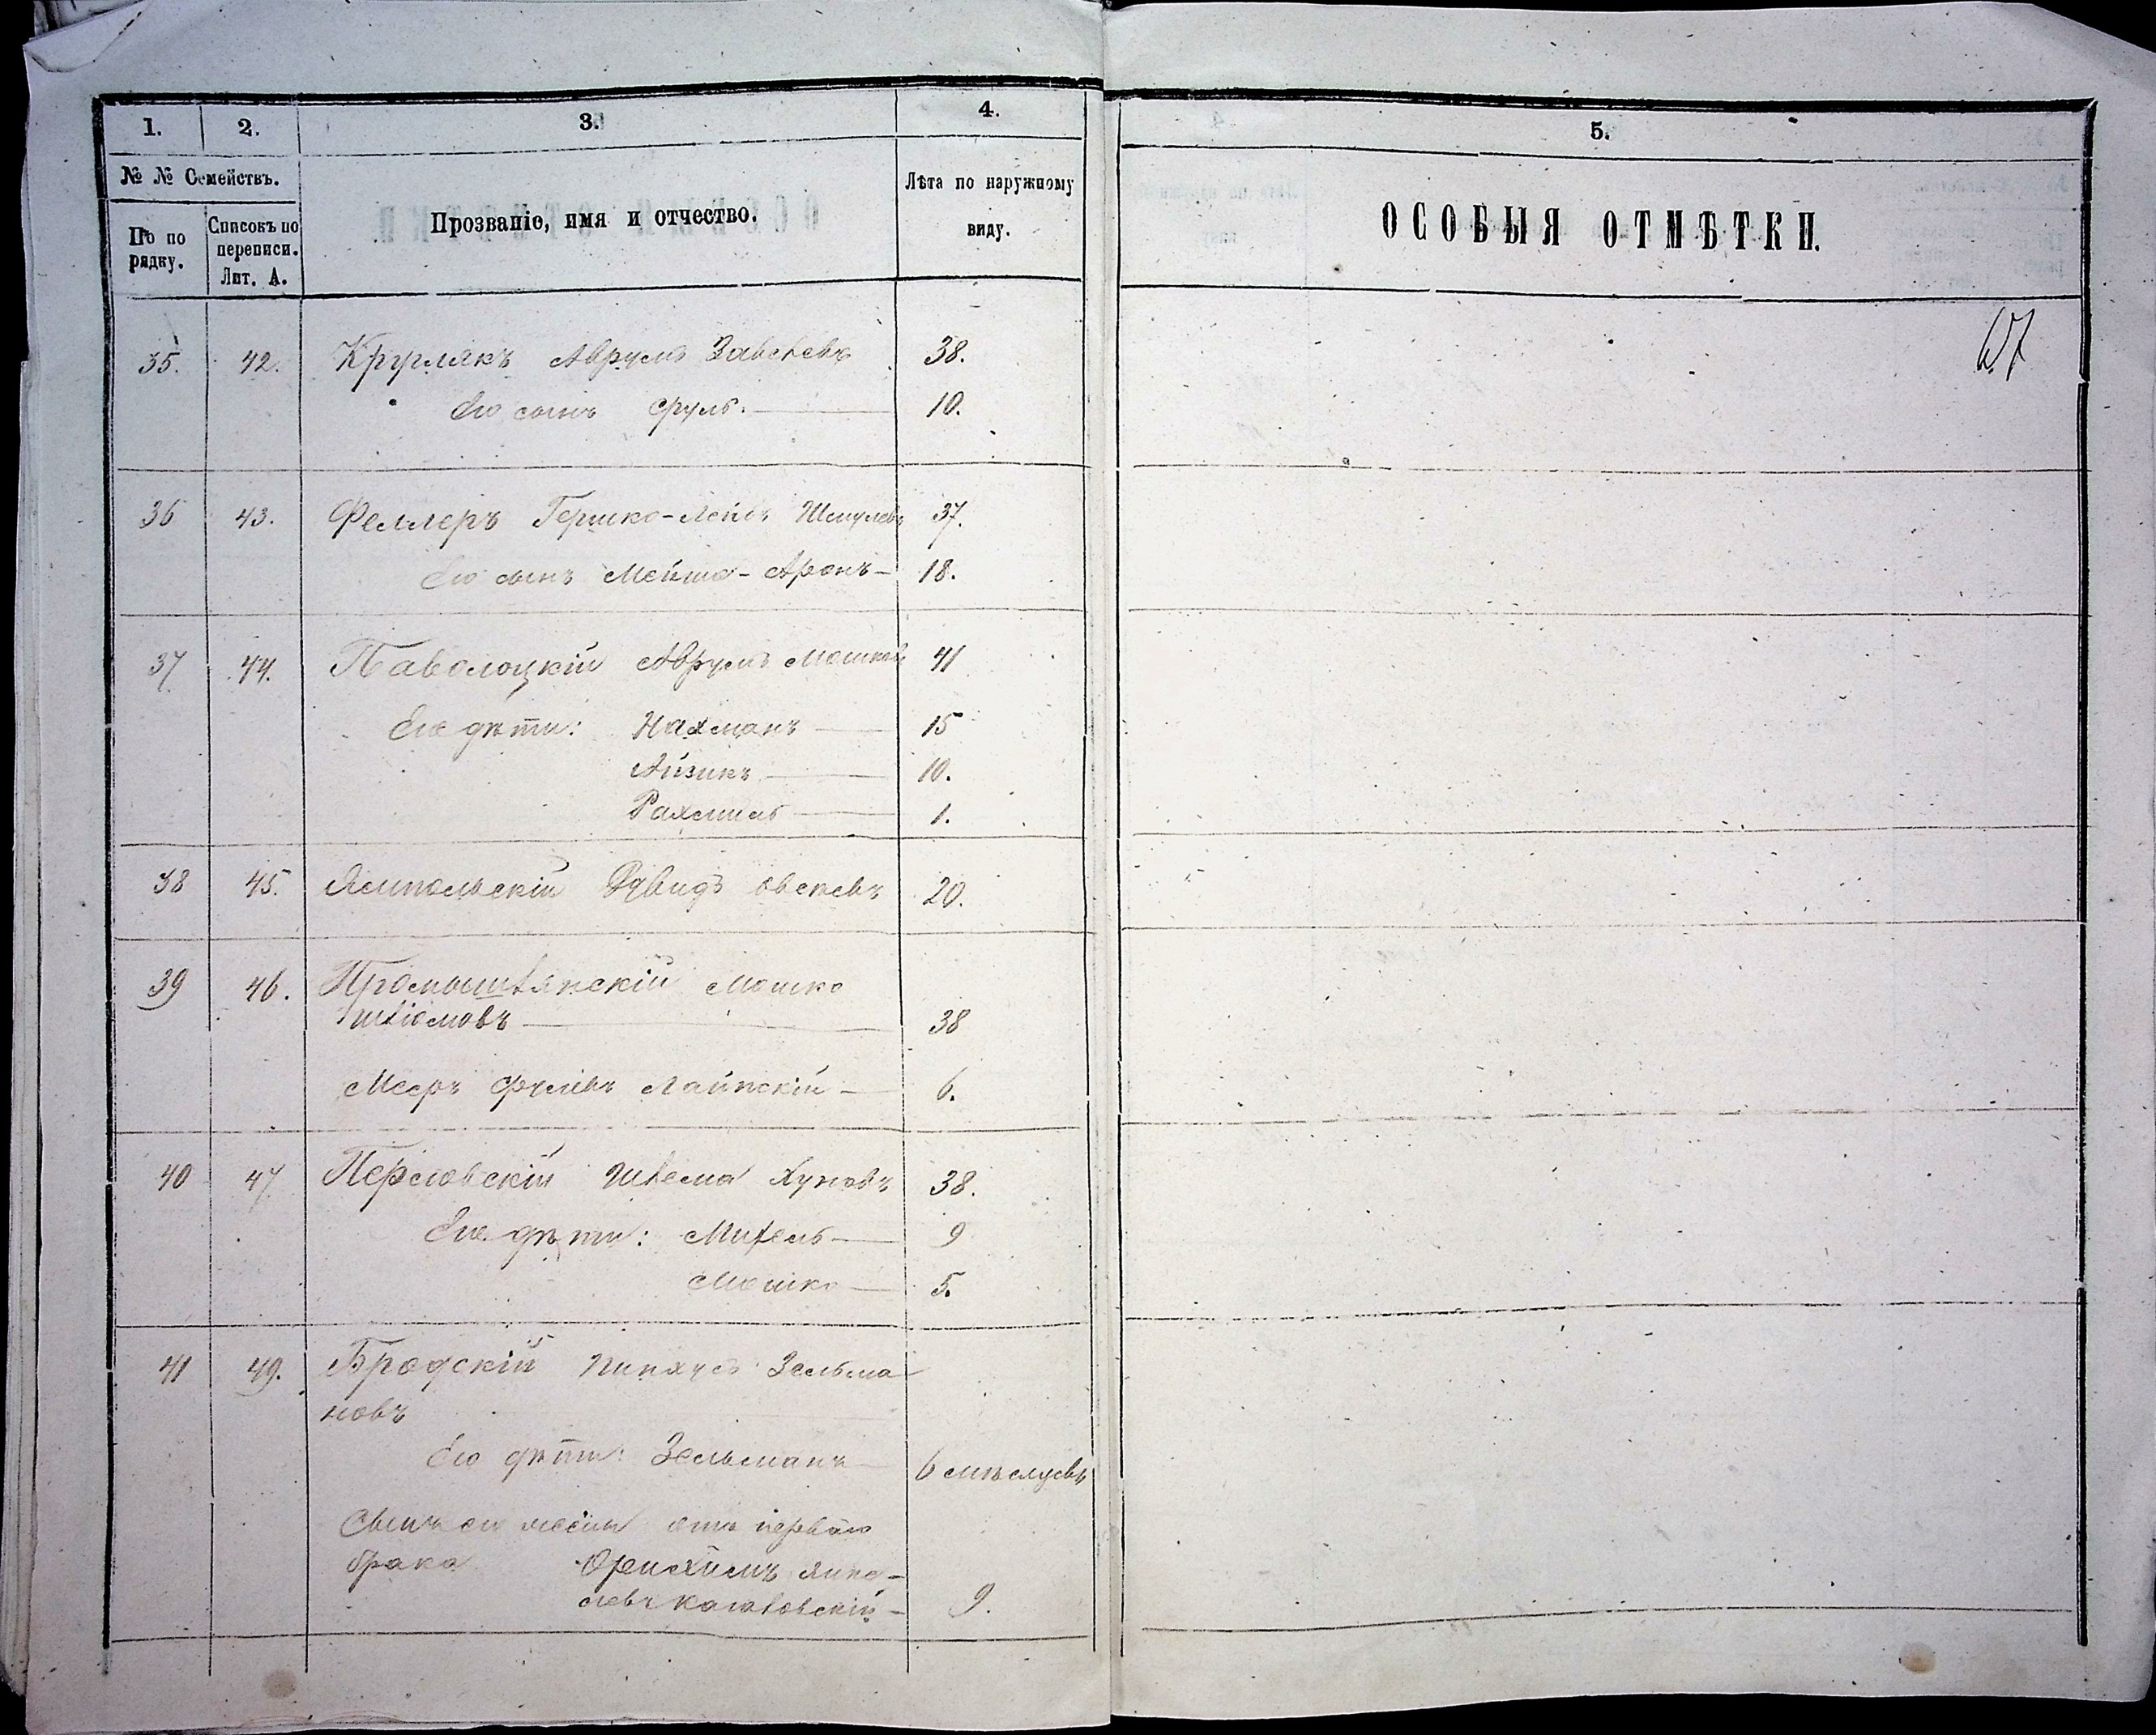 1. 2. 3. 4. 5.
№ № Семействъ.
По по
рядку.
Списокъ по
переписи.
Лит. А.
Прозваніе, имя и отчество.
Лѣта по наружному
виду.
ОСОБЫЯ ОТМѢТКИ.
35. 42. Круглякъ Аврумъ 38.
Его сынъ Сруль. 10.
36 43. Феллеръ Гершко-Лейбъ Шмулевъ 37.
Его сынъ Мейша-Аронъ 18.
37 44. Паволоцкій Аврумъ Мошковъ 41
Его дѣти: Нахманъ 15
Айзикъ 10.
Рахмиль 1.
38 45. Ямпольскій Давидъ 20.
39 46. Мошко
38
Мееръ 6.
40 47 Шлема Хуновъ 38.
Его дѣти: Михель 9
Мошко 5.
41 49. Бродскій Пинхусъ Зельма
новъ
Его дѣти: Зельманъ 6 мѣсяцевъ
Сынъ его жены отъ перваго
брака Янке-
левъ 9.